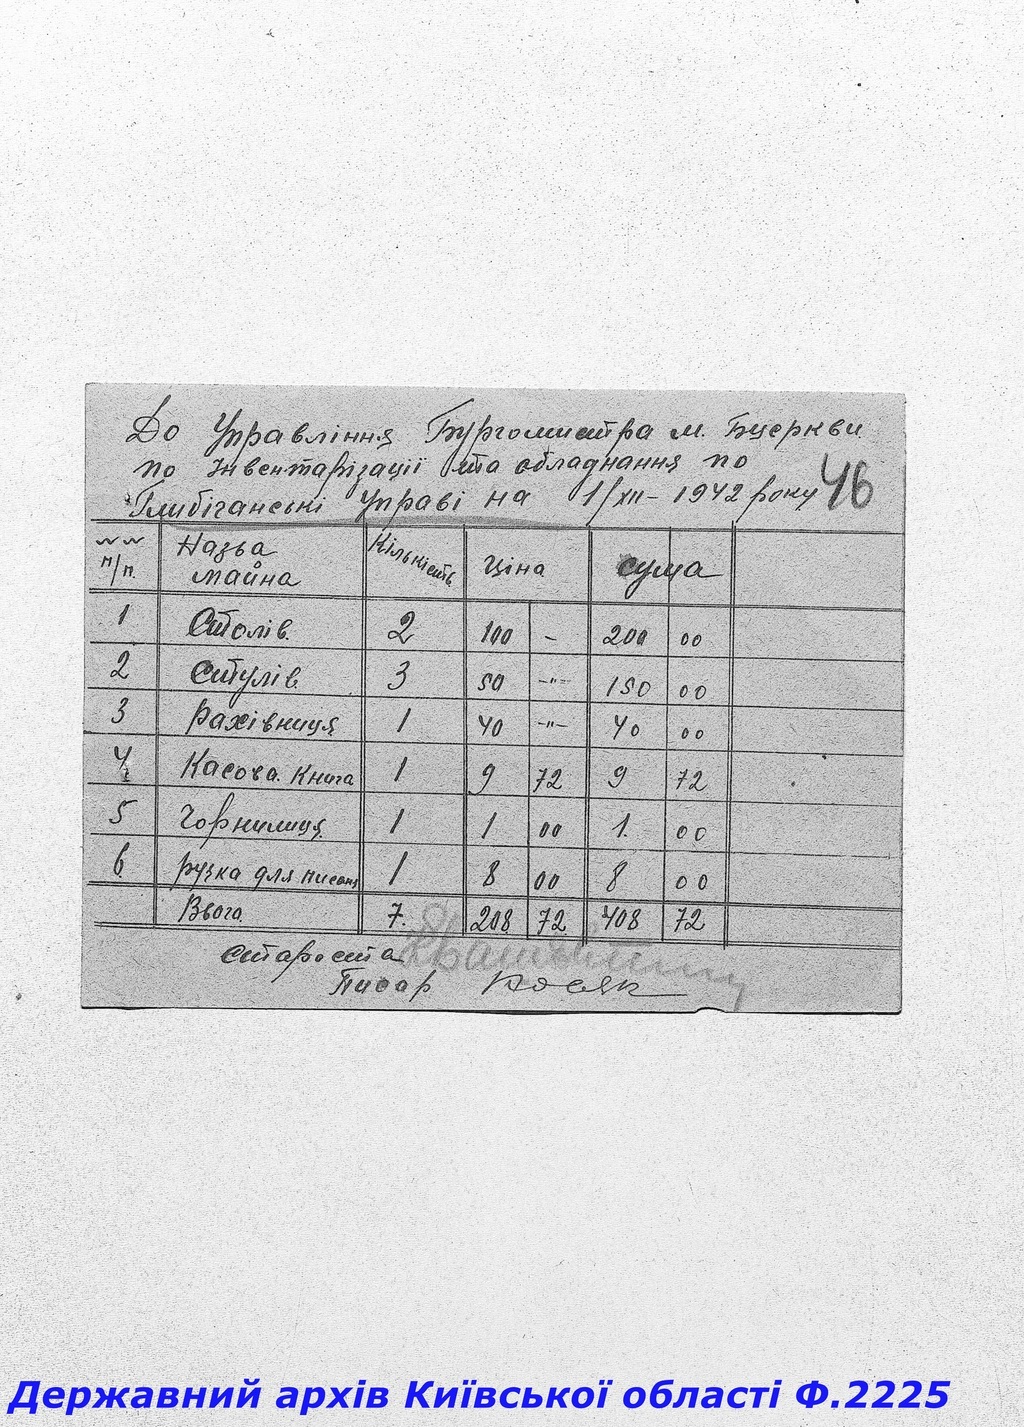 До Управління Бургомистра м. Бцеркви
по Інвентарізації та обладнання по
Глибічанські Управі на 1/XII - 1942 року
46
№№ п/п. Назва майна Кількість Ціна Сума
1 Столів. 2 100 - 200 00
2 Стулів. 3 50 -"- 150 00
3 Рахівниця 1 40 -"- 40 00
4 Касова Книга 1 9 72 9 72
5 Чорнилиця 1 1 00 1. 00
6 ручка для писання 1 8 00 8 00
Всього. 7. 208 72 408 72
Староста
Писар Косяк
Державний архів Київської області Ф.2225